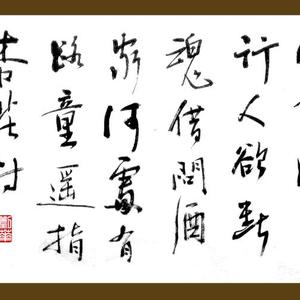 行人欲断
魂借問酒
家何處有
路童遥指
杏花村